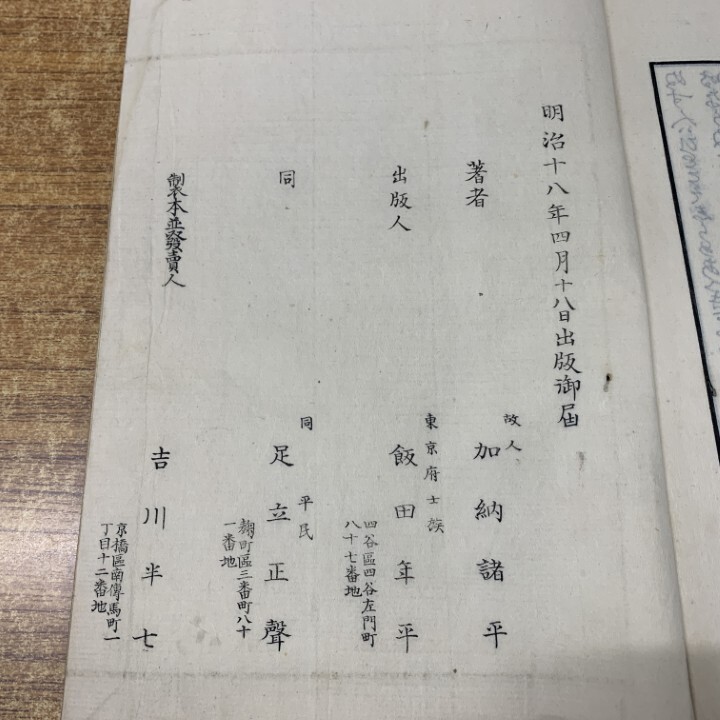 明治十八年四月十八日出版御届
著者
故人
加納諸平
出版人
東京府士族
飯田年平
四谷區四谷左門町
八十七番地
同
同 平民
足立正聲
麹町區三番町八十
一番地
製本並發賣人
吉川半七
京橋區南傳馬町一
丁目十二番地